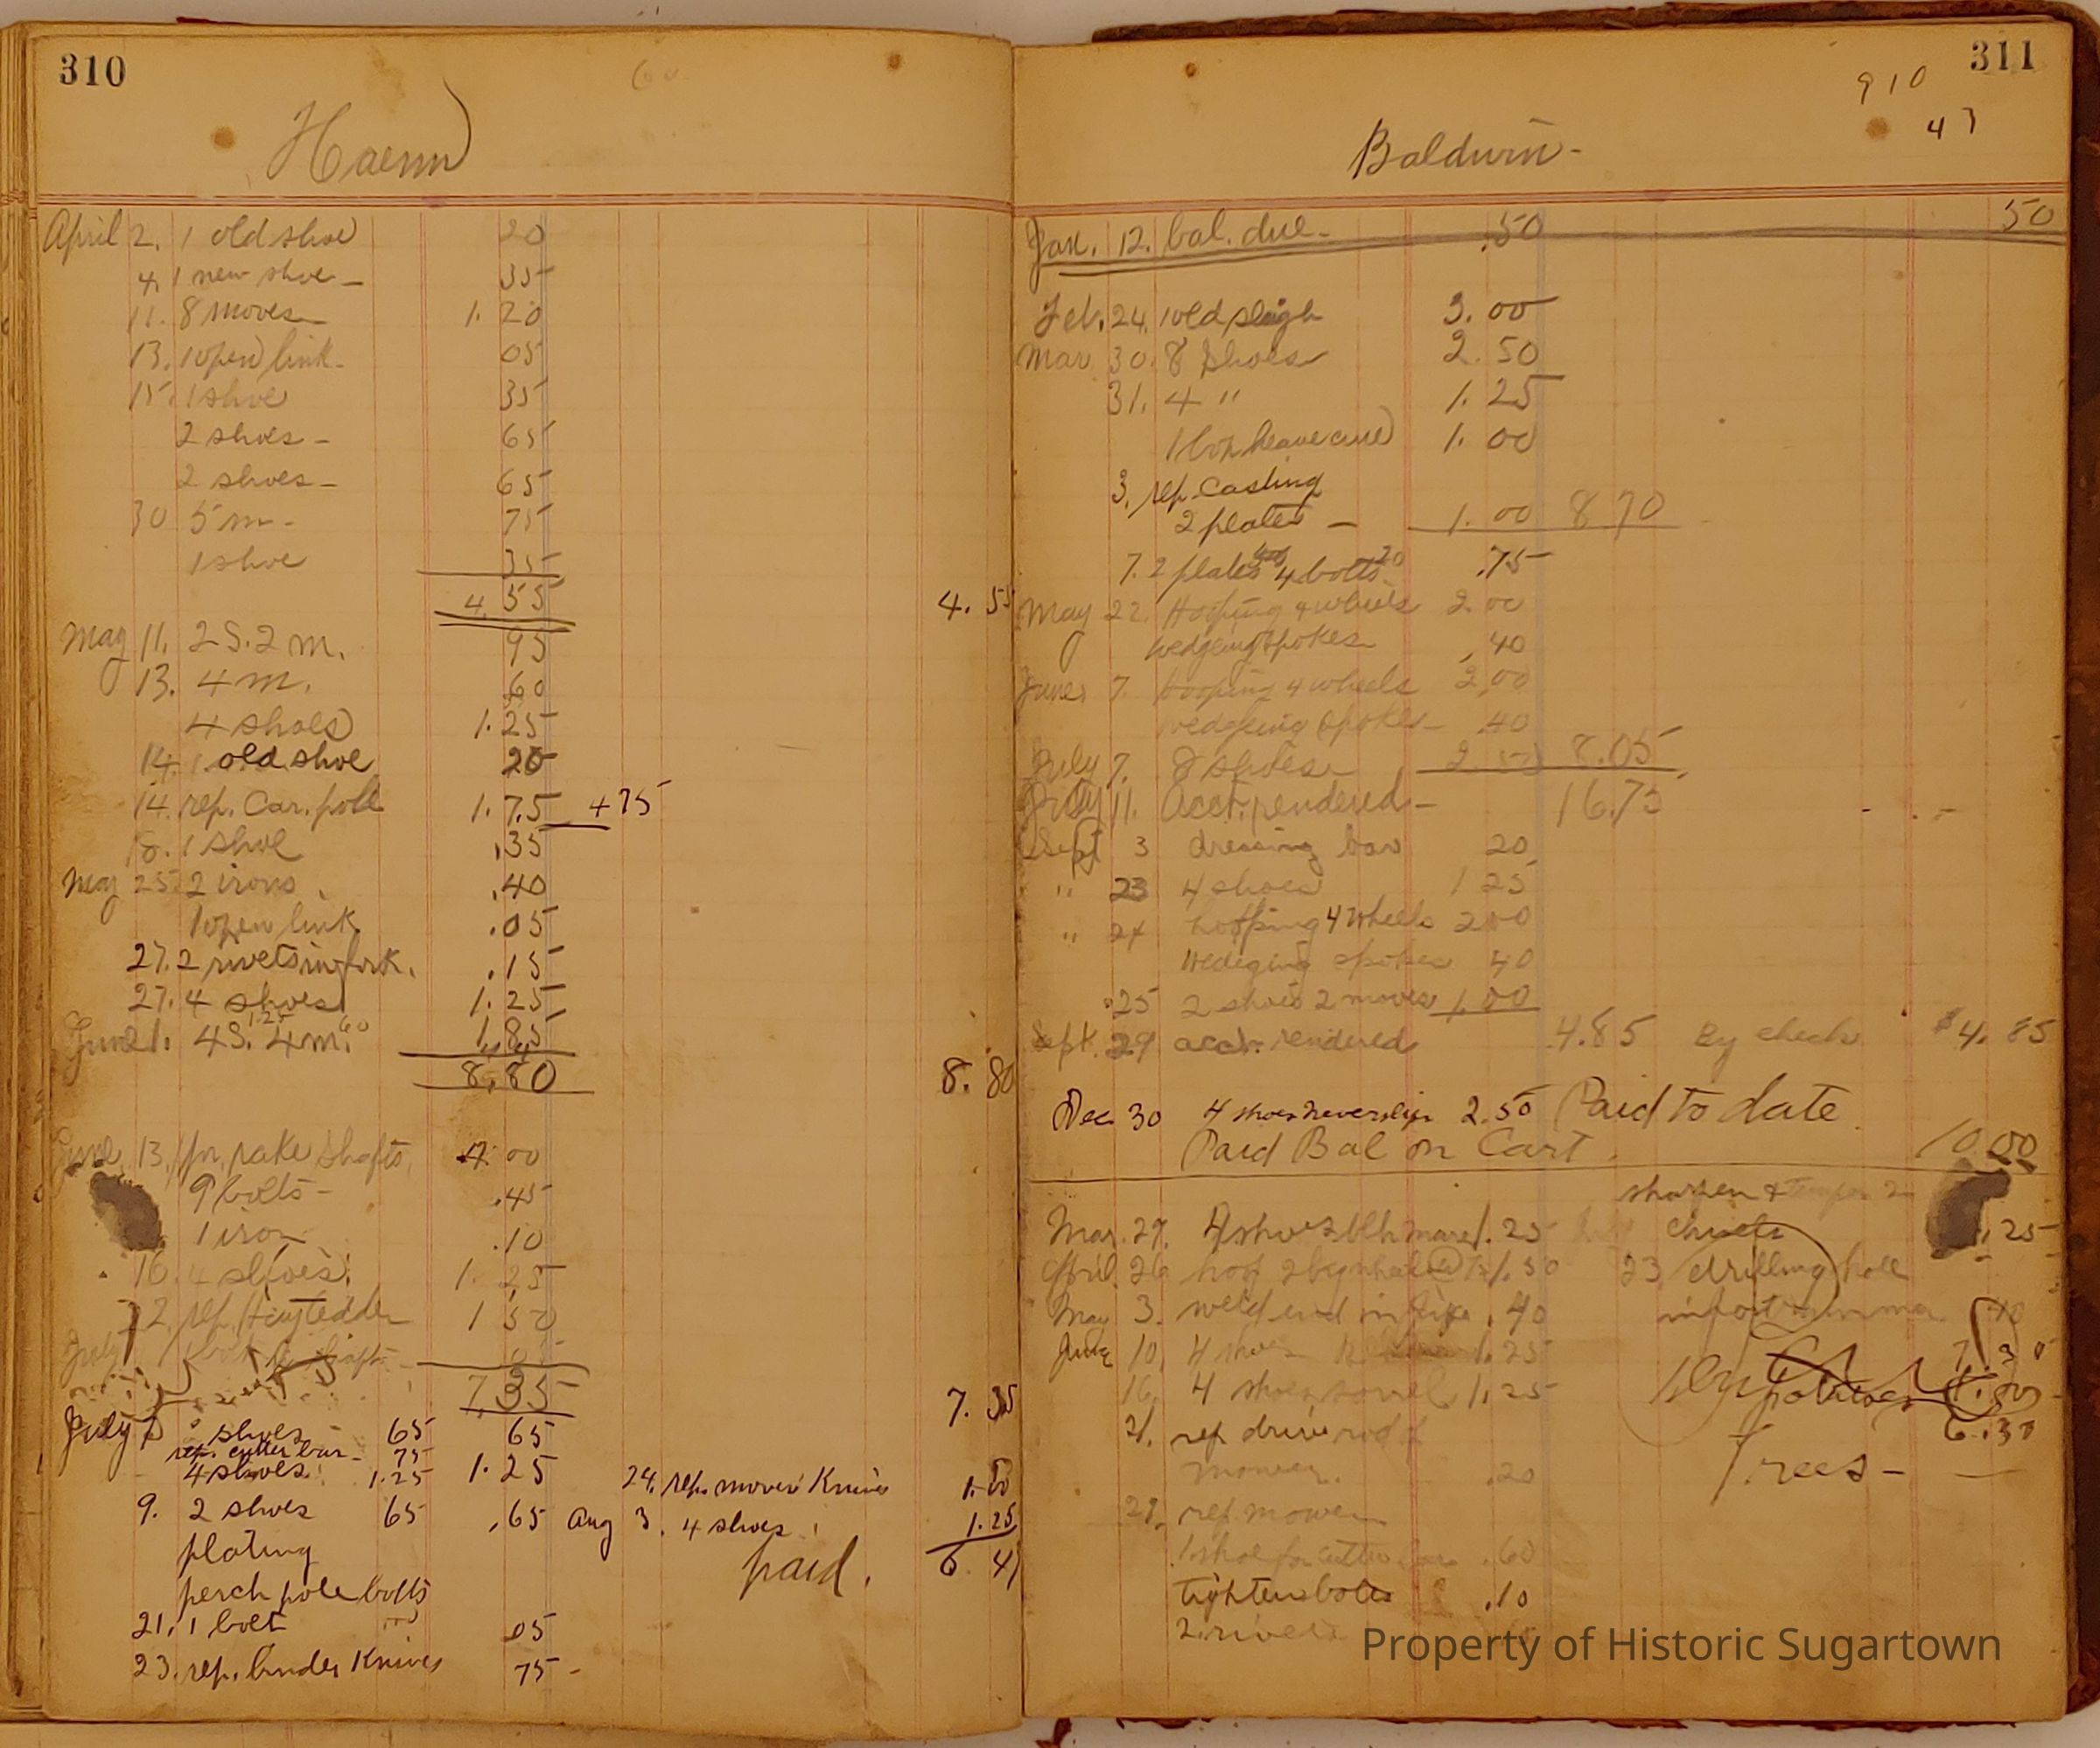 310
Haenn
April 2. 1 old shoe 20
4. 1 new shoe - 35
11. 8 moves 1.20
13. 1 open link - 05
15. 1 shoe 35
2 shoes - 65
2 shoes - 65
30 5 m - 75
1 shoe 35
4.55 4.55
May 11. 2 S. 2 m. 95
13. 4 m. 60
4 shoes 1.25
14. 1 old shoe 20
14. rep. Car. pole 1.75 +75
18. 1 shoe .35
May 25 2 irons .40
1 open link .05
27. 2 rivets in fork. .15
27. 4 shoes 1.25
June 1. 4 S. 1.25 4 m. 60 1.85
8.80 8.80
June 13. pr. rake shafts 4.00
9 bolts - .45
1 iron .10
16. 4 shoes 1.25
22. rep. Hay tedder 1 50
July
7.35 7.35
July shoes 65 65
rep. cutter bar - 75
4 shoes 1.25 1.25
24. rep. mower Knives 1.50
9. 2 shoes 65 .65
Aug 3. 4 shoes 1.25
plating
paid. 6 4
perch pole bolts
21. 1 bolt 05
23. rep. binder Knives 75 -
311
910
47
Baldwin -
Jan. 12. bal. due - .50 50
Feb. 24. 1 old sleigh 3.00
Mar 30. 8 shoes 2.50
31. 4 " 1.25
1 box heave cure 1.00
3. rep. Casting
2 plates - 1.00 8 70
7. 2 plates 4 bolts 20 .75
May 22. Hooping 4 wheels 2.00
wedgeing spokes .40
June 7. hooping 4 wheels 2.00
wedgeing spokes - 40
July 7. 8 shoes 2.50 8.05
July 11. Acct. rendered - 16.75
Sept 3 dressing bar 20
" 23 4 shoes 1 25
" 24 hooping 4 wheels 200
wedeging spokes 40
25 2 shoes 2 moves 1.00
Sept. 29 acct. rendered 4.85 By check $4.85
Dec 30 4 shoes neverslip 2.50 Paid to date
Paid Bal on Cart. 10.00
sharpen & temper 2
Mar. 27. 4 shoes blk mare 1.25 chisels .25
April 26 1.50 23 drilling hole
May 3. weld end in pipe .40 in foot
June 10. 4 shoes 1.25
16. 4 shoes sorrel 1.25 potatoes
21. rep drive rod of 6.30
mower. .20 Trees -
27. rep. mower
1 shoe for cutter bar .60
tighten bolts .10
2 rivets
Property of Historic Sugartown